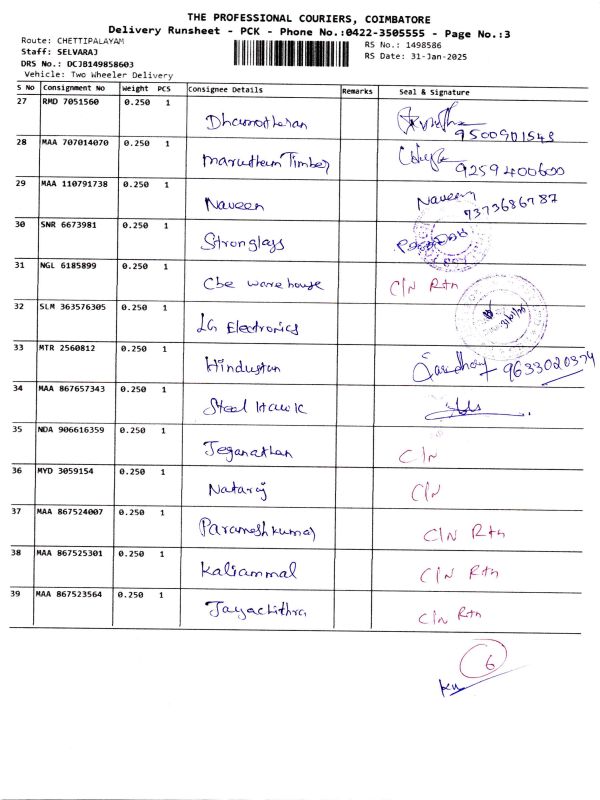 THE PROFESSIONAL COURIERS, COIMBATORE
Delivery Runsheet - PCK - Phone No.:0422-3505555 - Page No.:3
Route: CHETTIPALAYAM
RS No.: 1498586
Staff: SELVARAJ
RS Date: 31-Jan-2025
DRS No.: DCJB149858603
Vehicle: Two Wheeler Delivery
S No Consignment No Weight PCS Consignee Details Remarks Seal & Signature
27 RMD 7051560 0.250 1
Dhamotharan 9500901543
28 MAA 707014070 0.250 1
Marutham Timber 9259400600
29 MAA 110791738 0.250 1
Naveen Naveen 7373686787
30 SNR 6673981 0.250 1
Stronglays
31 NGL 6185899 0.250 1
Cbe warehouse C/N Rtn
32 SLM 363576305 0.250 1
LG Electronics
33 MTR 2560812 0.250 1
Hindustan 9633020374
34 MAA 867657343 0.250 1
Steel Hawk
35 NDA 906616359 0.250 1
Jeganathan C/N
36 MYD 3059154 0.250 1
Nataraj C/N
37 MAA 867524007 0.250 1
Parameshkumar C/N Rtn
38 MAA 867525301 0.250 1
Kaliammal C/N Rtn
39 MAA 867523564 0.250 1
Jayachithra C/N Rtn
6